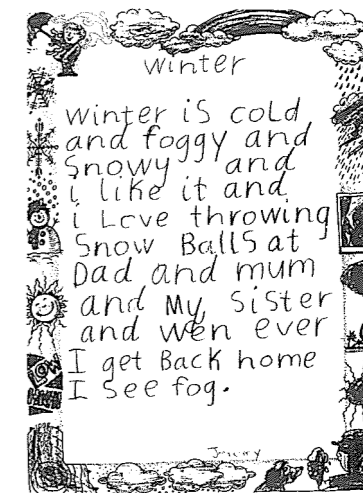 winter
winter is cold
and foggy and
snowy and
i like it and
i Love throwing
Snow Balls at
Dad and mum
and My Sister
and wen ever
I get Back home
I see fog.